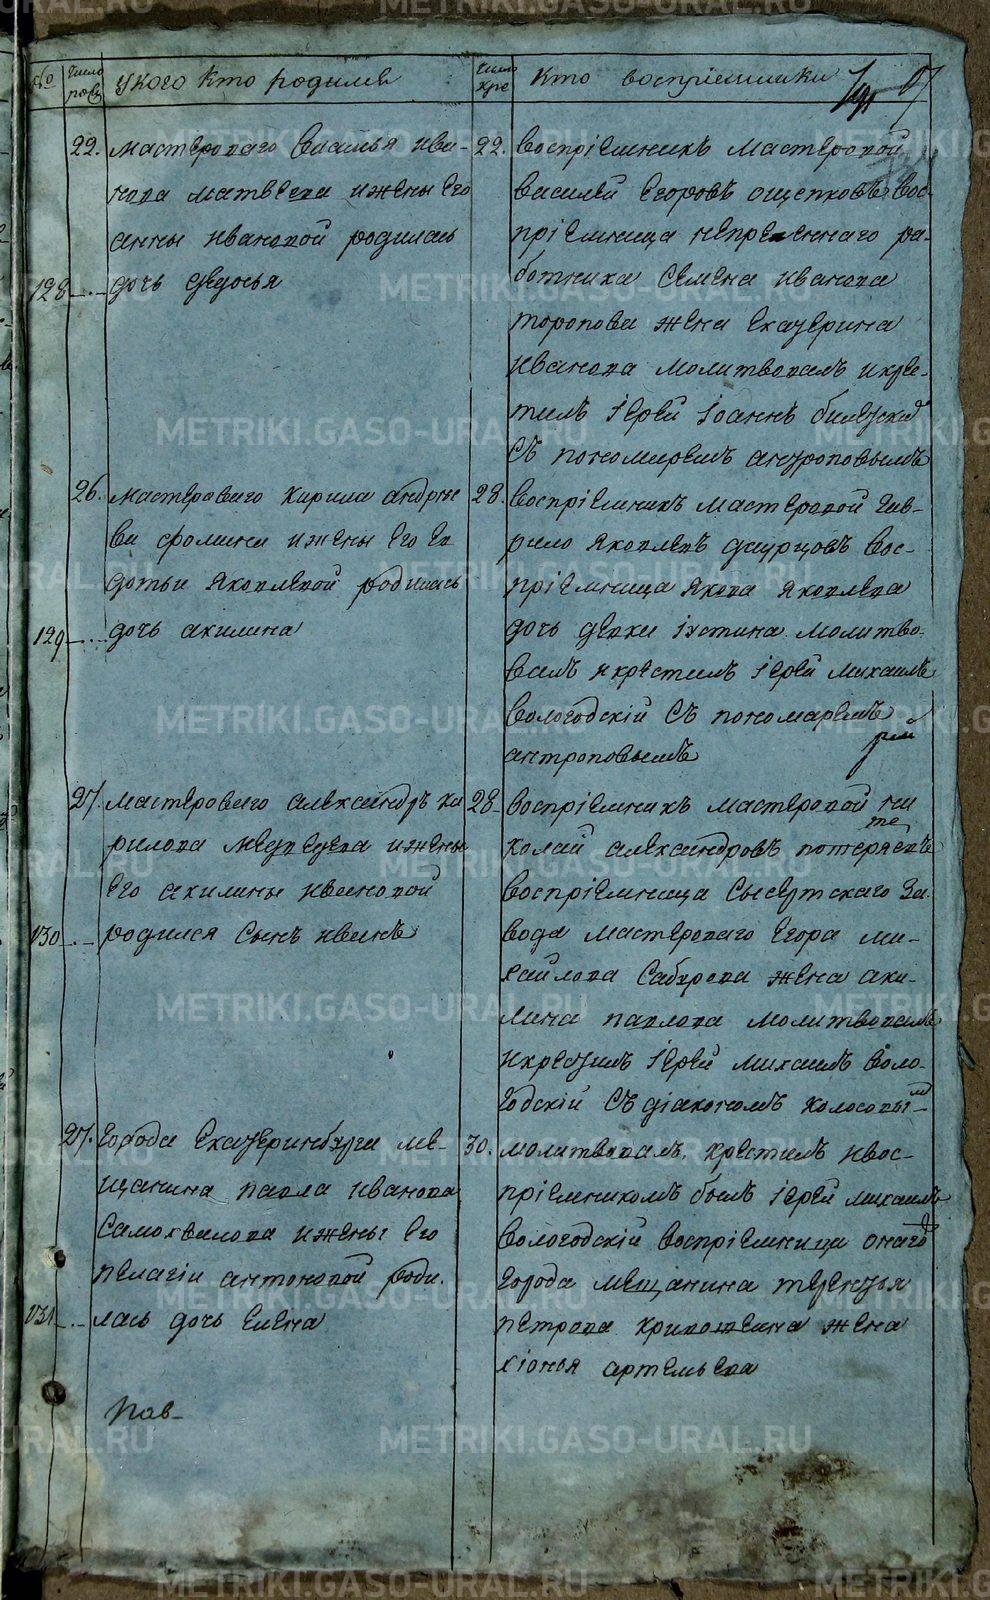 № число рож у кого кто родился число кре кто восприемники
22. мастероваго Василья ива-
нова матвеева и жены его
анны ивановой родилась
128 дочь федосья
22. Воспріемникъ мастеровой
василей егоровъ ощепковъ вос-
пріемница непременнаго ра-
ботника семена иванова
торопова жена екатерина
иванова молитвовалъ и кре-
тилъ іерей іоаннъ
съ пономаремъ антроповымъ
26. мастероваго кирила андрее
ва фомина и жены его ев
дотьи яковлевой родилась
129 дочь акилина
28. Воспріемникъ мастеровой гав-
рило яковлевъ вос-
пріемница якова яковлева
дочь девки іустина молитво-
валъ и крестилъ іерей михаилъ
вологодскій съ пономаремъ
антроповымъ
27. мастероваго александръ ки
рилова медведева и жены
его акилины ивановой
130 родился сынъ иванъ
28 воспріемникъ мастеровой ни
колай александровъ потеряевъ
воспріемница сысертскаго за-
вода мастероваго егора ми-
хайлова жена аки-
лина павлова молитвовалъ
и крестилъ іерей михаилъ воло-
годскій съ діакономъ колосовы-мъ
27. города екатеринбурга ме-
щанина павла иванова
самохвалова и жены его
пелагіи антоновой роди-
131 лась дочь елена
30. молитвовалъ, крестилъ и вос-
пріемникомъ былъ іерей михаилъ
вологодскій воспріемница онаго
города мещанина терентья
петрова кривошеина жена
хіонья артемьева